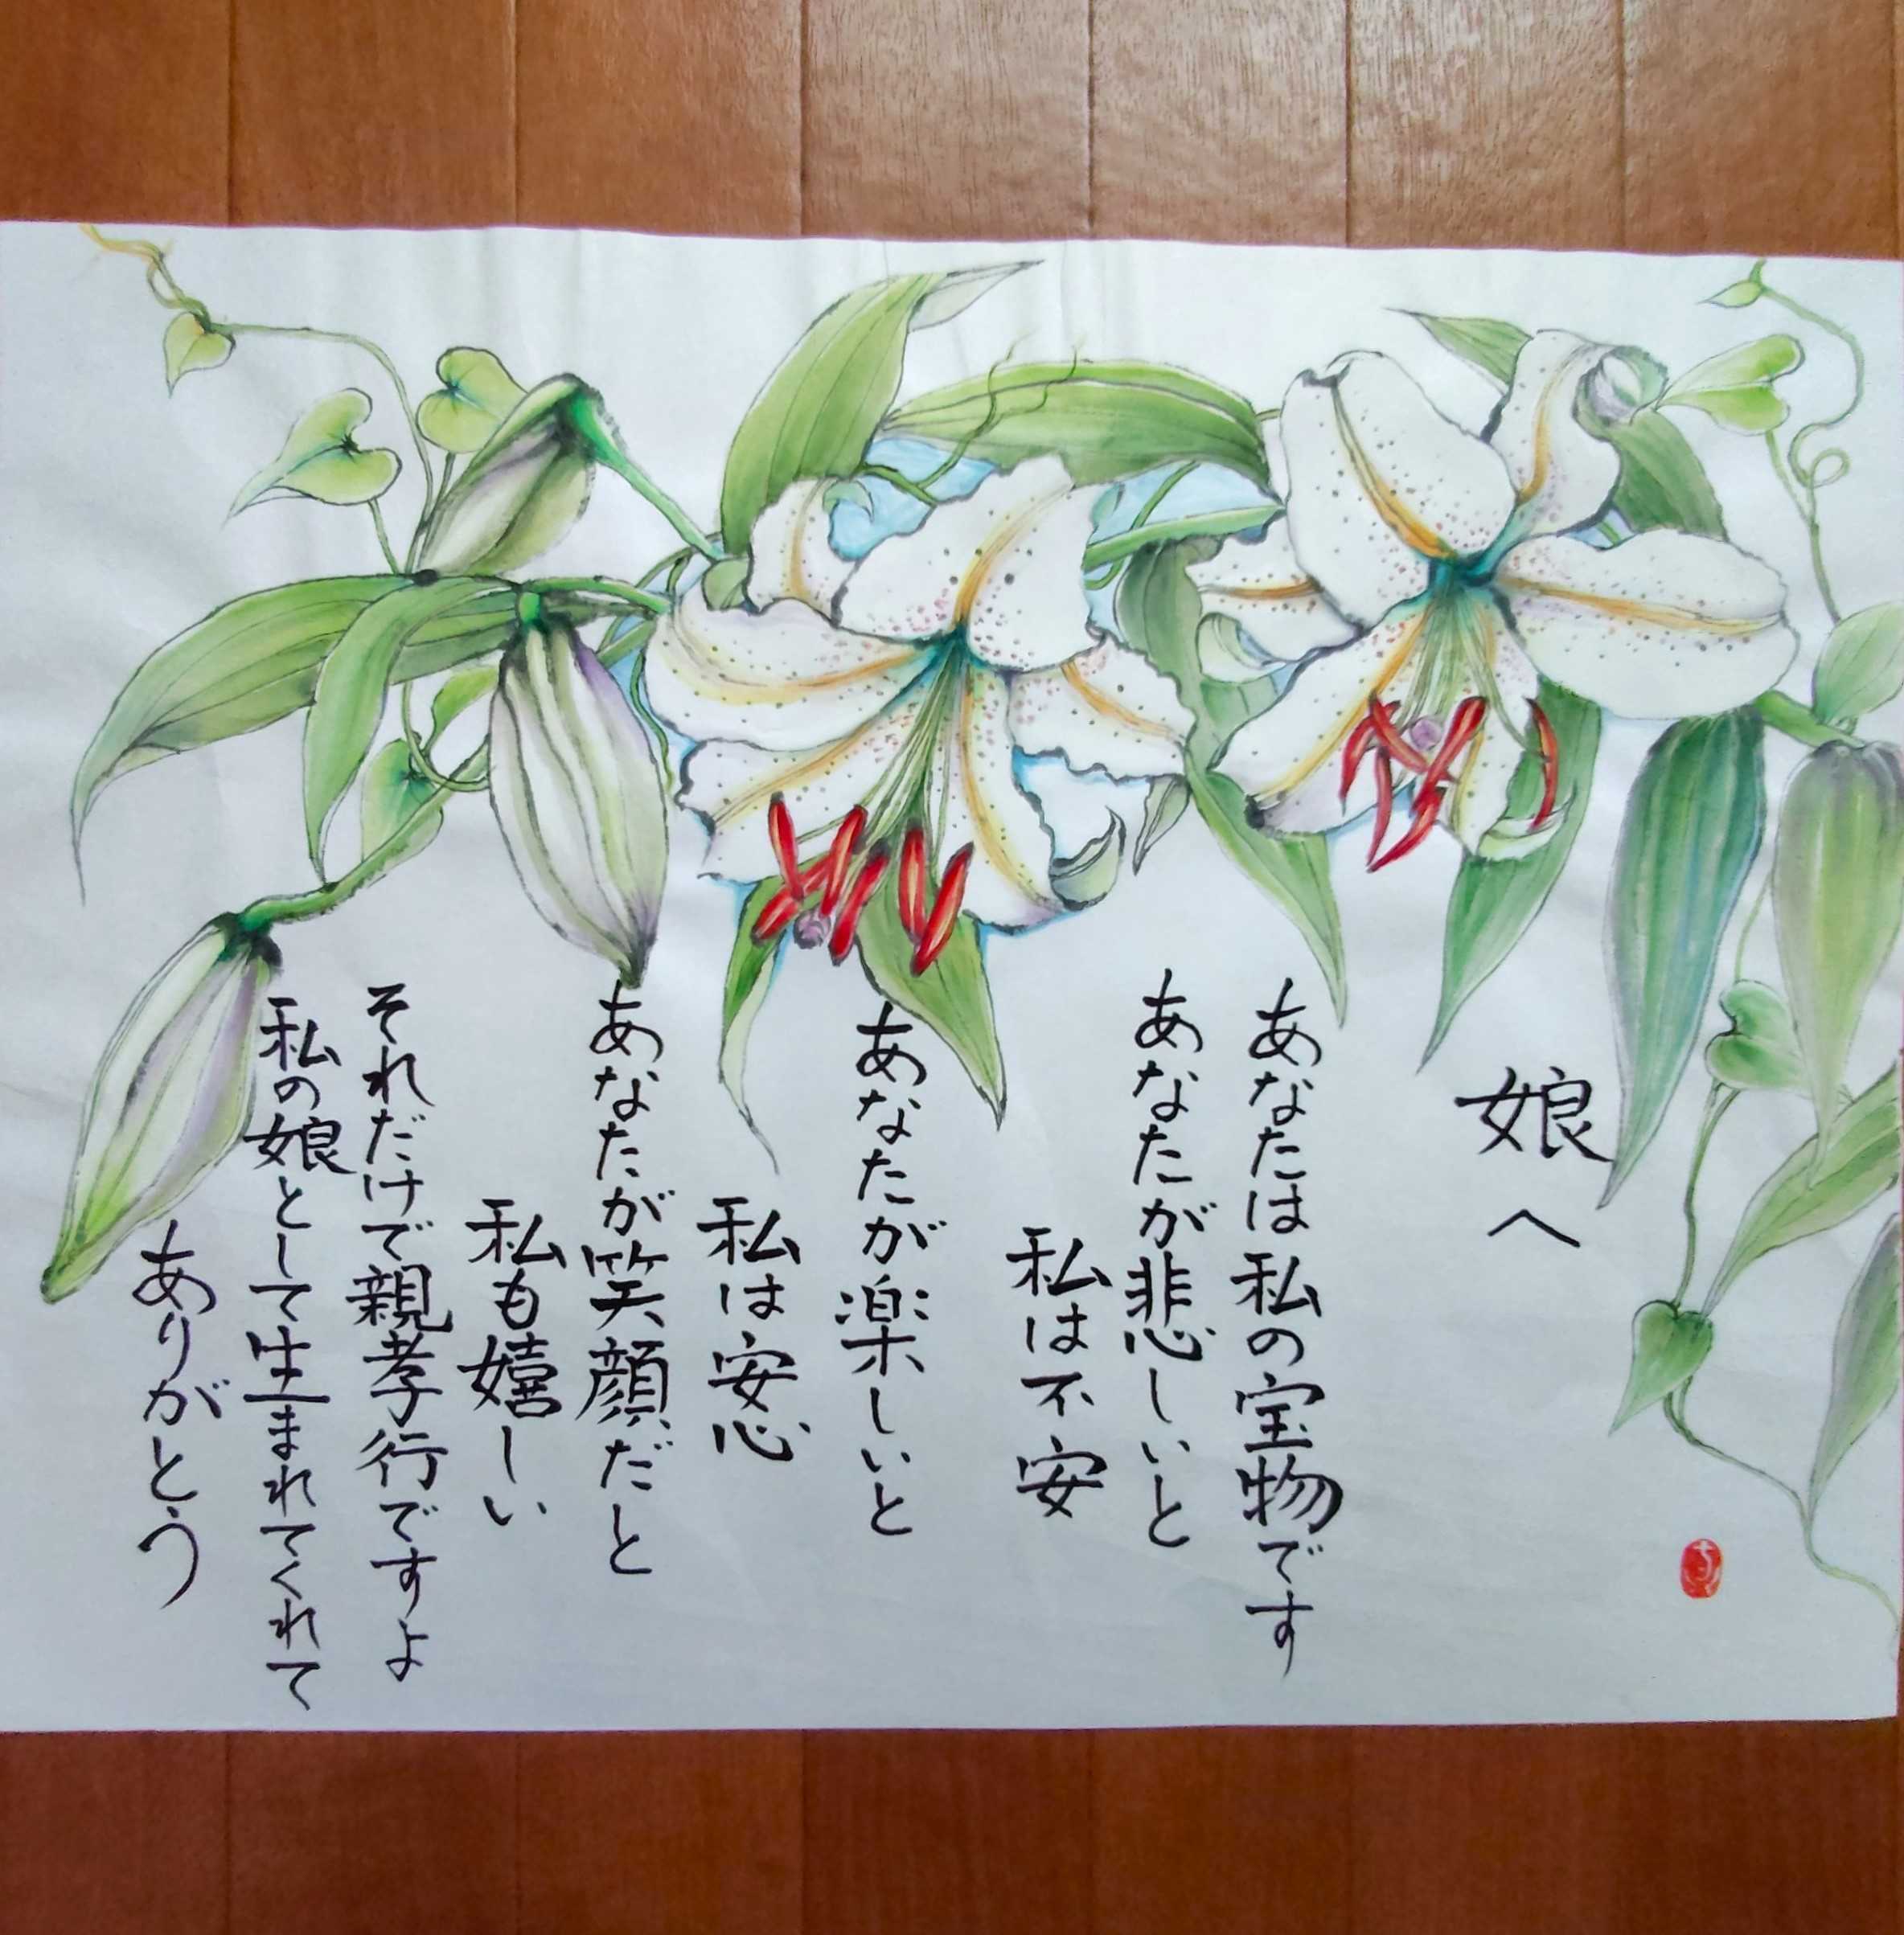 娘へ
あなたは私の宝物です
あなたが悲しいと
私は不安
あなたが楽しいと
私は安心
あなたが笑顔だと
私も嬉しい
それだけで親孝行ですよ
私の娘として生まれてくれて
ありがとう